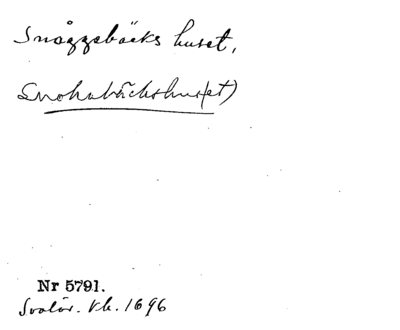 Snåggebäcks huset,
Snokabäckshus(et)
Nr 5791.
Svalöv. Kk. 1696